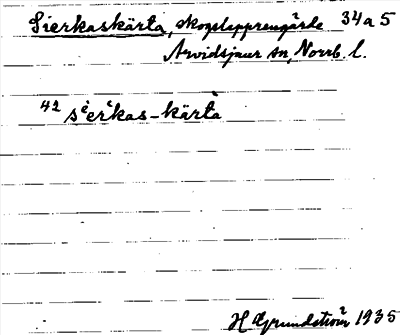 Sierkaskärta, skogslapprengärde 34a5
Arvidsjaur sn, Norrb. l.
42 sierkas-kärta
H Grundström 1935